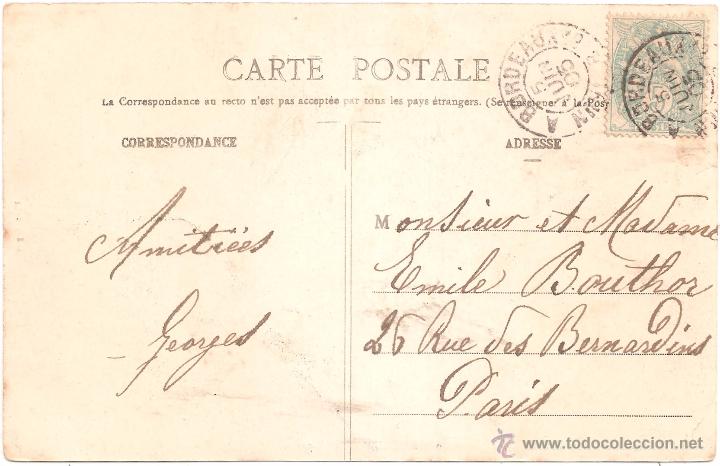 CARTE POSTALE
La Correspondance au recto n'est pas acceptée par tous les pays étrangers. (Se renseigner à la Post
CORRESPONDANCE
ADRESSE
Amitiées
Georges
Monsieur et Madame
Emile Bouthor
26 Rue des Bernardins
Paris
BORDEAUX A
JUIN
05
BORDEAUX A
JUIN
05
tc www.todocoleccion.net